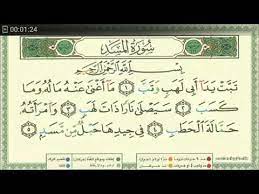 00:01:24
سُورَةُ المَسَدِ
بِسْمِ ٱللَّهِ ٱلرَّحْمَٰنِ ٱلرَّحِيمِ
تَبَّتْ يَدَآ أَبِى لَهَبٍ وَتَبَّ ١ مَآ أَغْنَىٰ عَنْهُ مَالُهُۥ وَمَا
كَسَبَ ٢ سَيَصْلَىٰ نَارًا ذَاتَ لَهَبٍ ٣ وَٱمْرَأَتُهُۥ
حَمَّالَةَ ٱلْحَطَبِ ٤ فِى جِيدِهَا حَبْلٌ مِّن مَّسَدٍۭ ٥